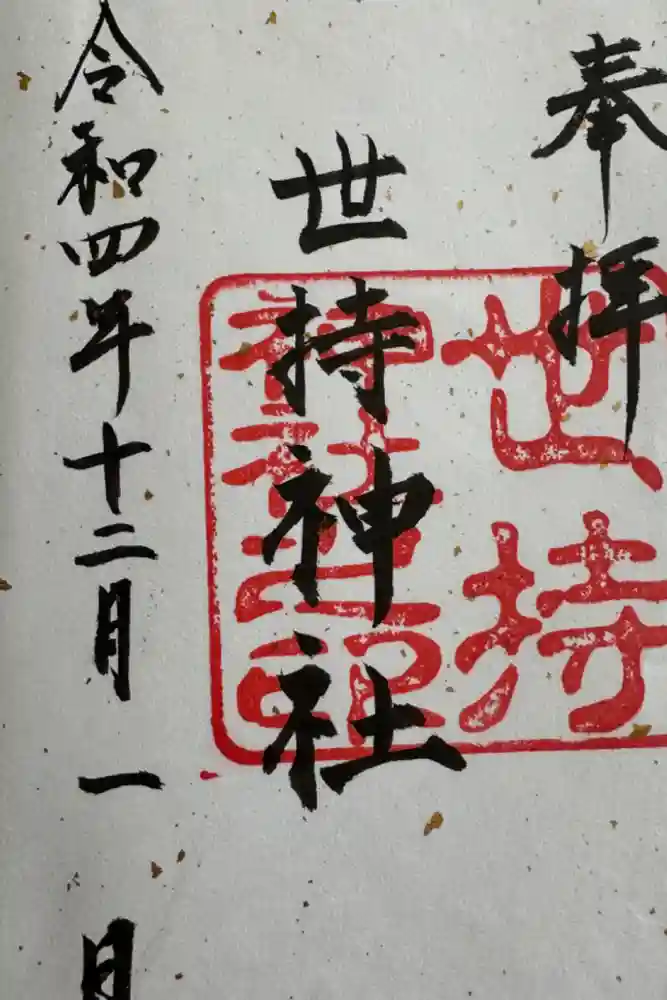 奉拝
世持神社
令和四年十二月一日
世持
神社之印